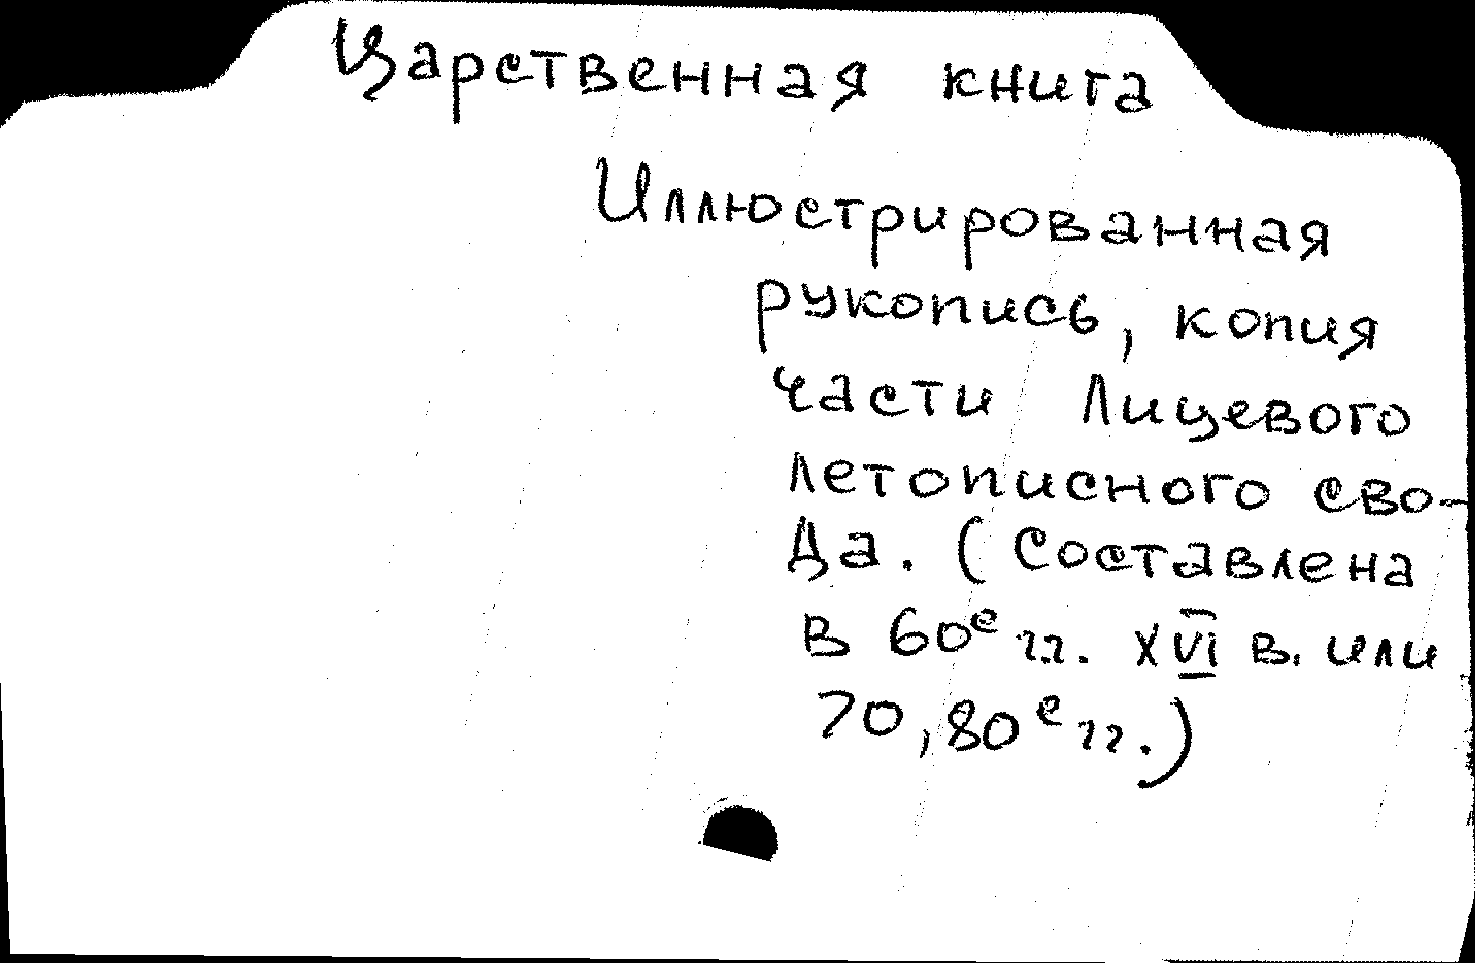 Царственная книга
Иллюстрированная
рукопись, копия
части Лицевого
летописного сво-
да. (Составлена
в 60е гг. XVI в. или
70, 80е гг.)